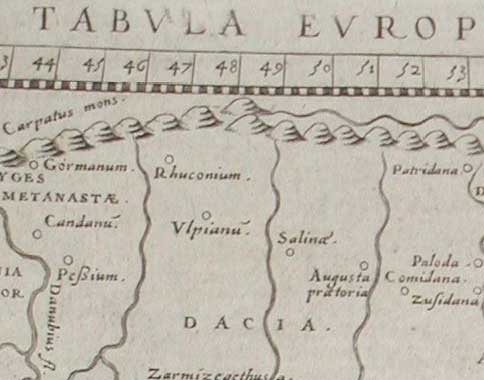 TABVLA EVROP
3 44 45 46 47 48 49 50 51 52 53
Carpatus mons.
Górmanum.
Rhuconium.
Patridana.
YGES
METANASTÆ.
Candanū.
Vlpianū.
Salinæ.
Peßium.
Augusta
prætoria
Paloda.
Comidana.
Zusidana
OR.
Danubius fl.
DACIA.
Zarmizegethusa